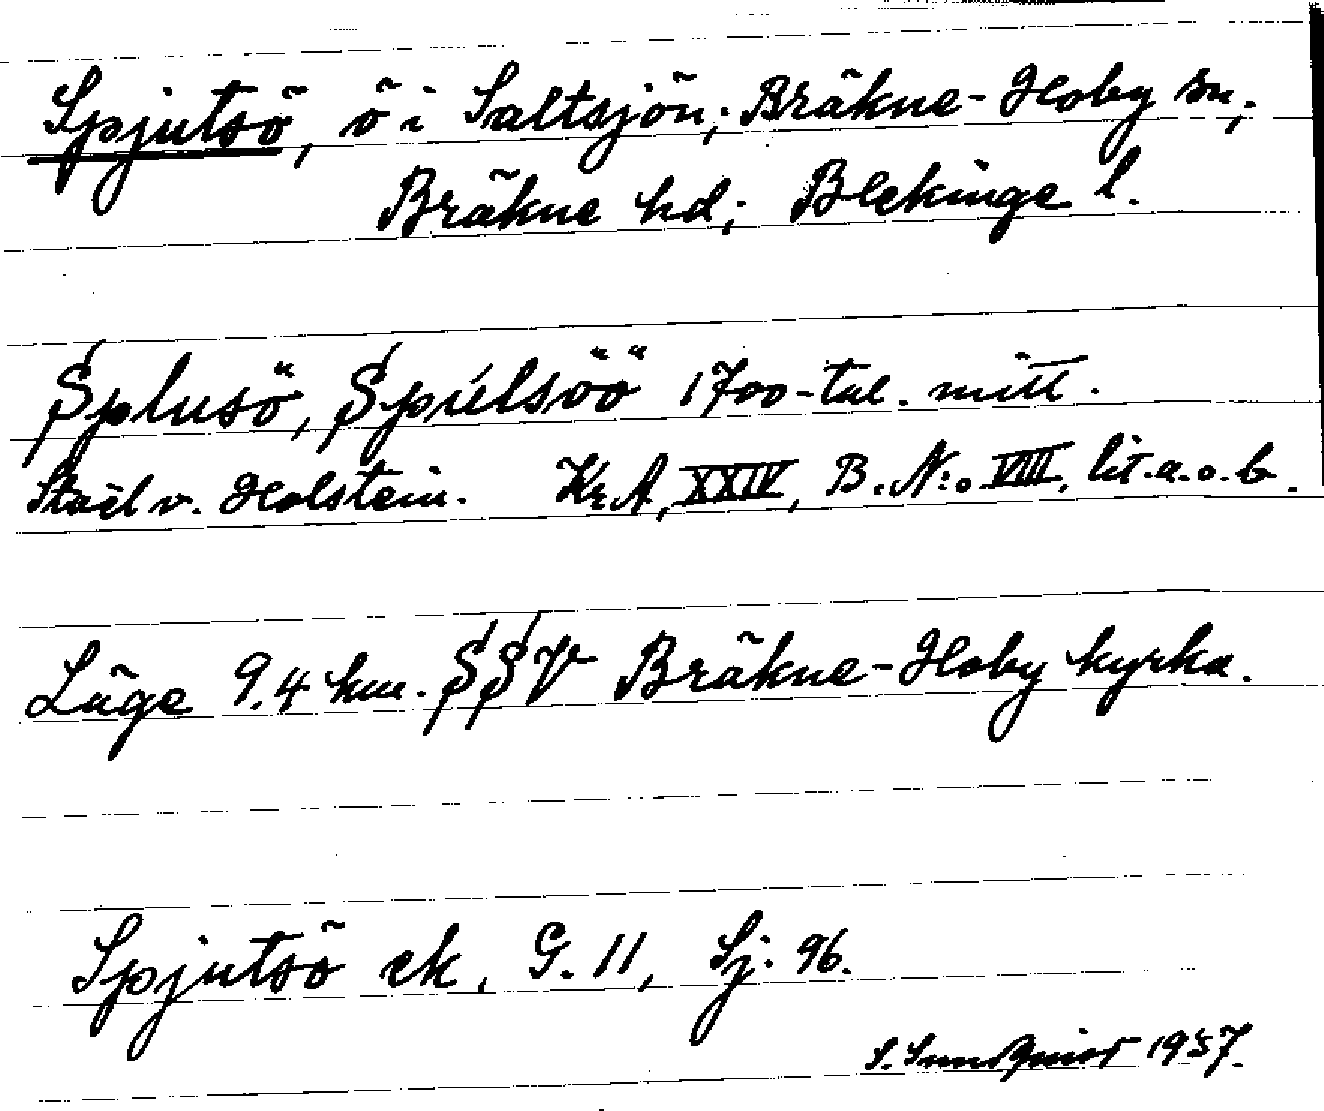 Spjutsö, ö i Saltsjön; Bräkne-Hoby sn;
Bräkne hd; Blekinge l.
Splusö, Spúlsöö 1700-tal. mitt.
Staël v. Holstein. Kr.A, XXIV, B. N:o VIII, lit. a. o. b.
Läge 9.4 km. SSV Bräkne-Hoby kyrka.
Spjutsö ek. G. 11, Sj: 96.
S. Sundquist 1937.